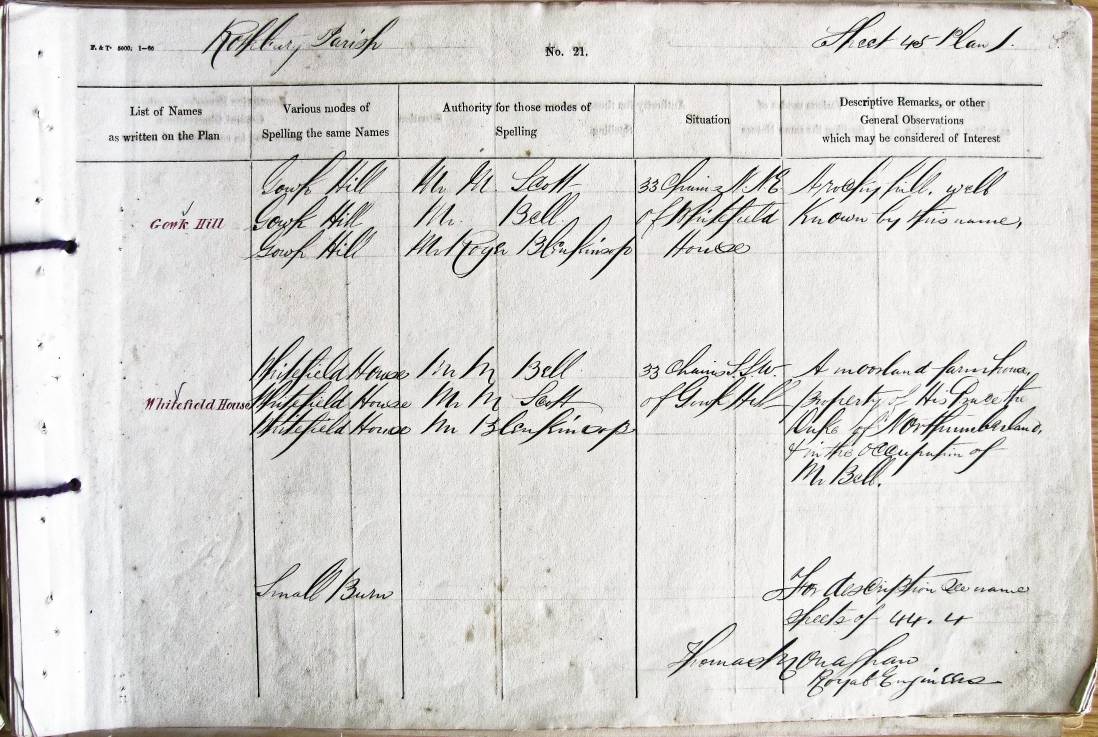 F. & T. 5000; 1—60
Rothbury Parish
No. 21.
Sheet 45 Plan 1.
List of Names
as written on the Plan
Various modes of
Spelling the same Names
Authority for those modes of
Spelling
Situation
Descriptive Remarks, or other
General Observations
which may be considered of Interest
Gowk Hill
Gowk Hill
Gowk Hill
Gowk Hill
Mr. M. Scott
Mr. Bell
Mr Roger Blenkinsop
33 Chains N.N.E
of Whitefield
House
A rocky hill, well
known by this name,
Whitefield House
Whitefield House
Whitefield House
Whitefield House
Mr M Bell
Mr M Scott
Mr Blenkinsop
33 Chains S.S.W.
of Gowk Hill
A moorland farmhouse,
property of His Grace the
Duke of Northumberland,
& in the occupation of
Mr Bell.
Small Burn
For description see name
sheets of 44.4
Thomas Monaghan
Royal Engineers